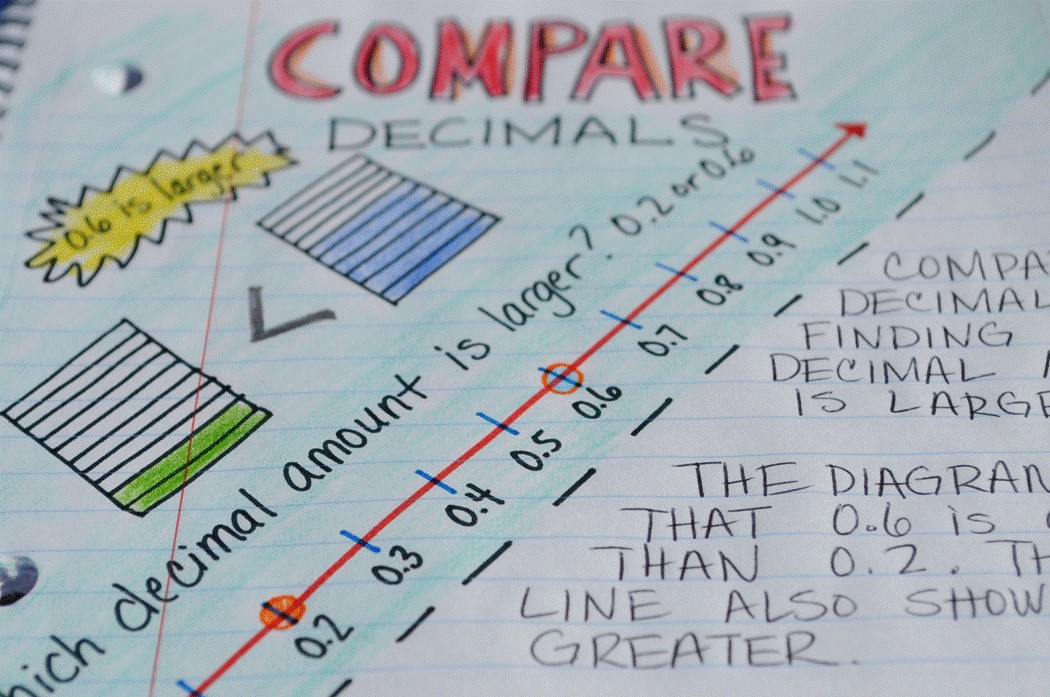 COMPARE
DECIMALS
0.6 is larger
decimal amount is larger? 0.2 or 0.6
0.2
0.3
0.4
0.5
0.6
0.7
0.8
0.9
1.0
1.1
DECIMAL
FINDING
DECIMAL
IS
THE
THAT 0.6 is
THAN 0.2.
LINE ALSO
GREATER.